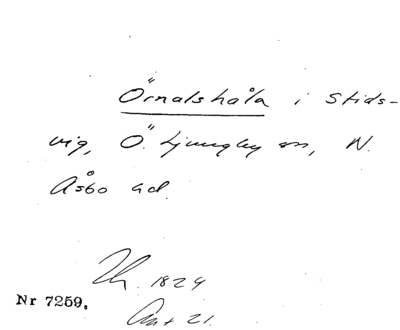 Örnalshåla i Stids-
vig, Ö. Ljungby sn, N.
Åsbo hd.
1824
Nr 7259.
21.